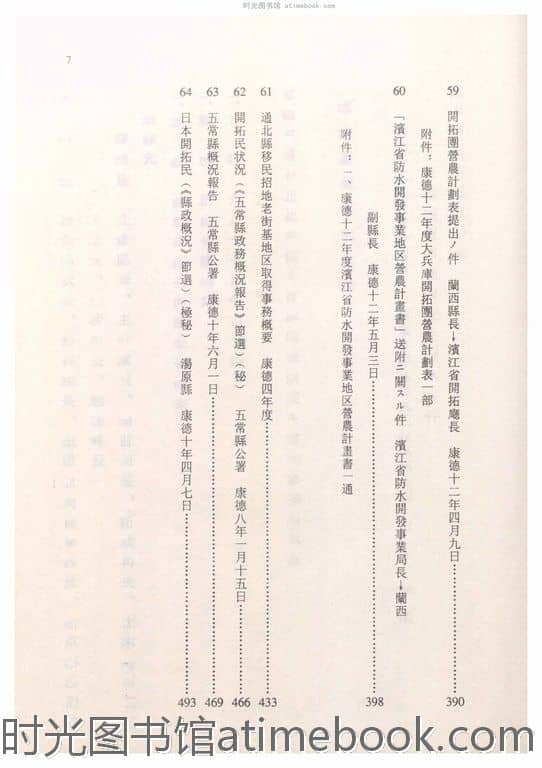 时光图书馆 atimebook.com
7
59 開拓團營農計劃表提出ノ件 蘭西縣長→濱江省開拓廳長 康德十二年四月九日 390
附件：康德十二年度大兵庫開拓團營農計劃表一部
60 「濱江省防水開發事業地区營農計畫書」送附ニ關スル件 濱江省防水開發事業局長→蘭西
副縣長 康德十二年五月三日 398
附件：一、康德十二年度濱江省防水開發事業地区營農計畫書一通
61 通北縣移民招地老街基地区取得事務概要 康德四年度 433
62 開拓民状況（《五常縣政務概況報告》節選）（秘） 五常縣公署 康德八年一月十五日 466
63 五常縣概況報告 五常縣公署 康德十年六月一日 469
64 日本開拓民（《縣政概況》節選）（極秘） 湯原縣 康德十年四月七日 493
时光图书馆atimebook.com